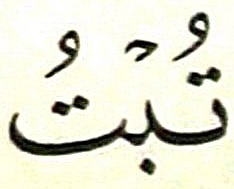 تُبْتُ